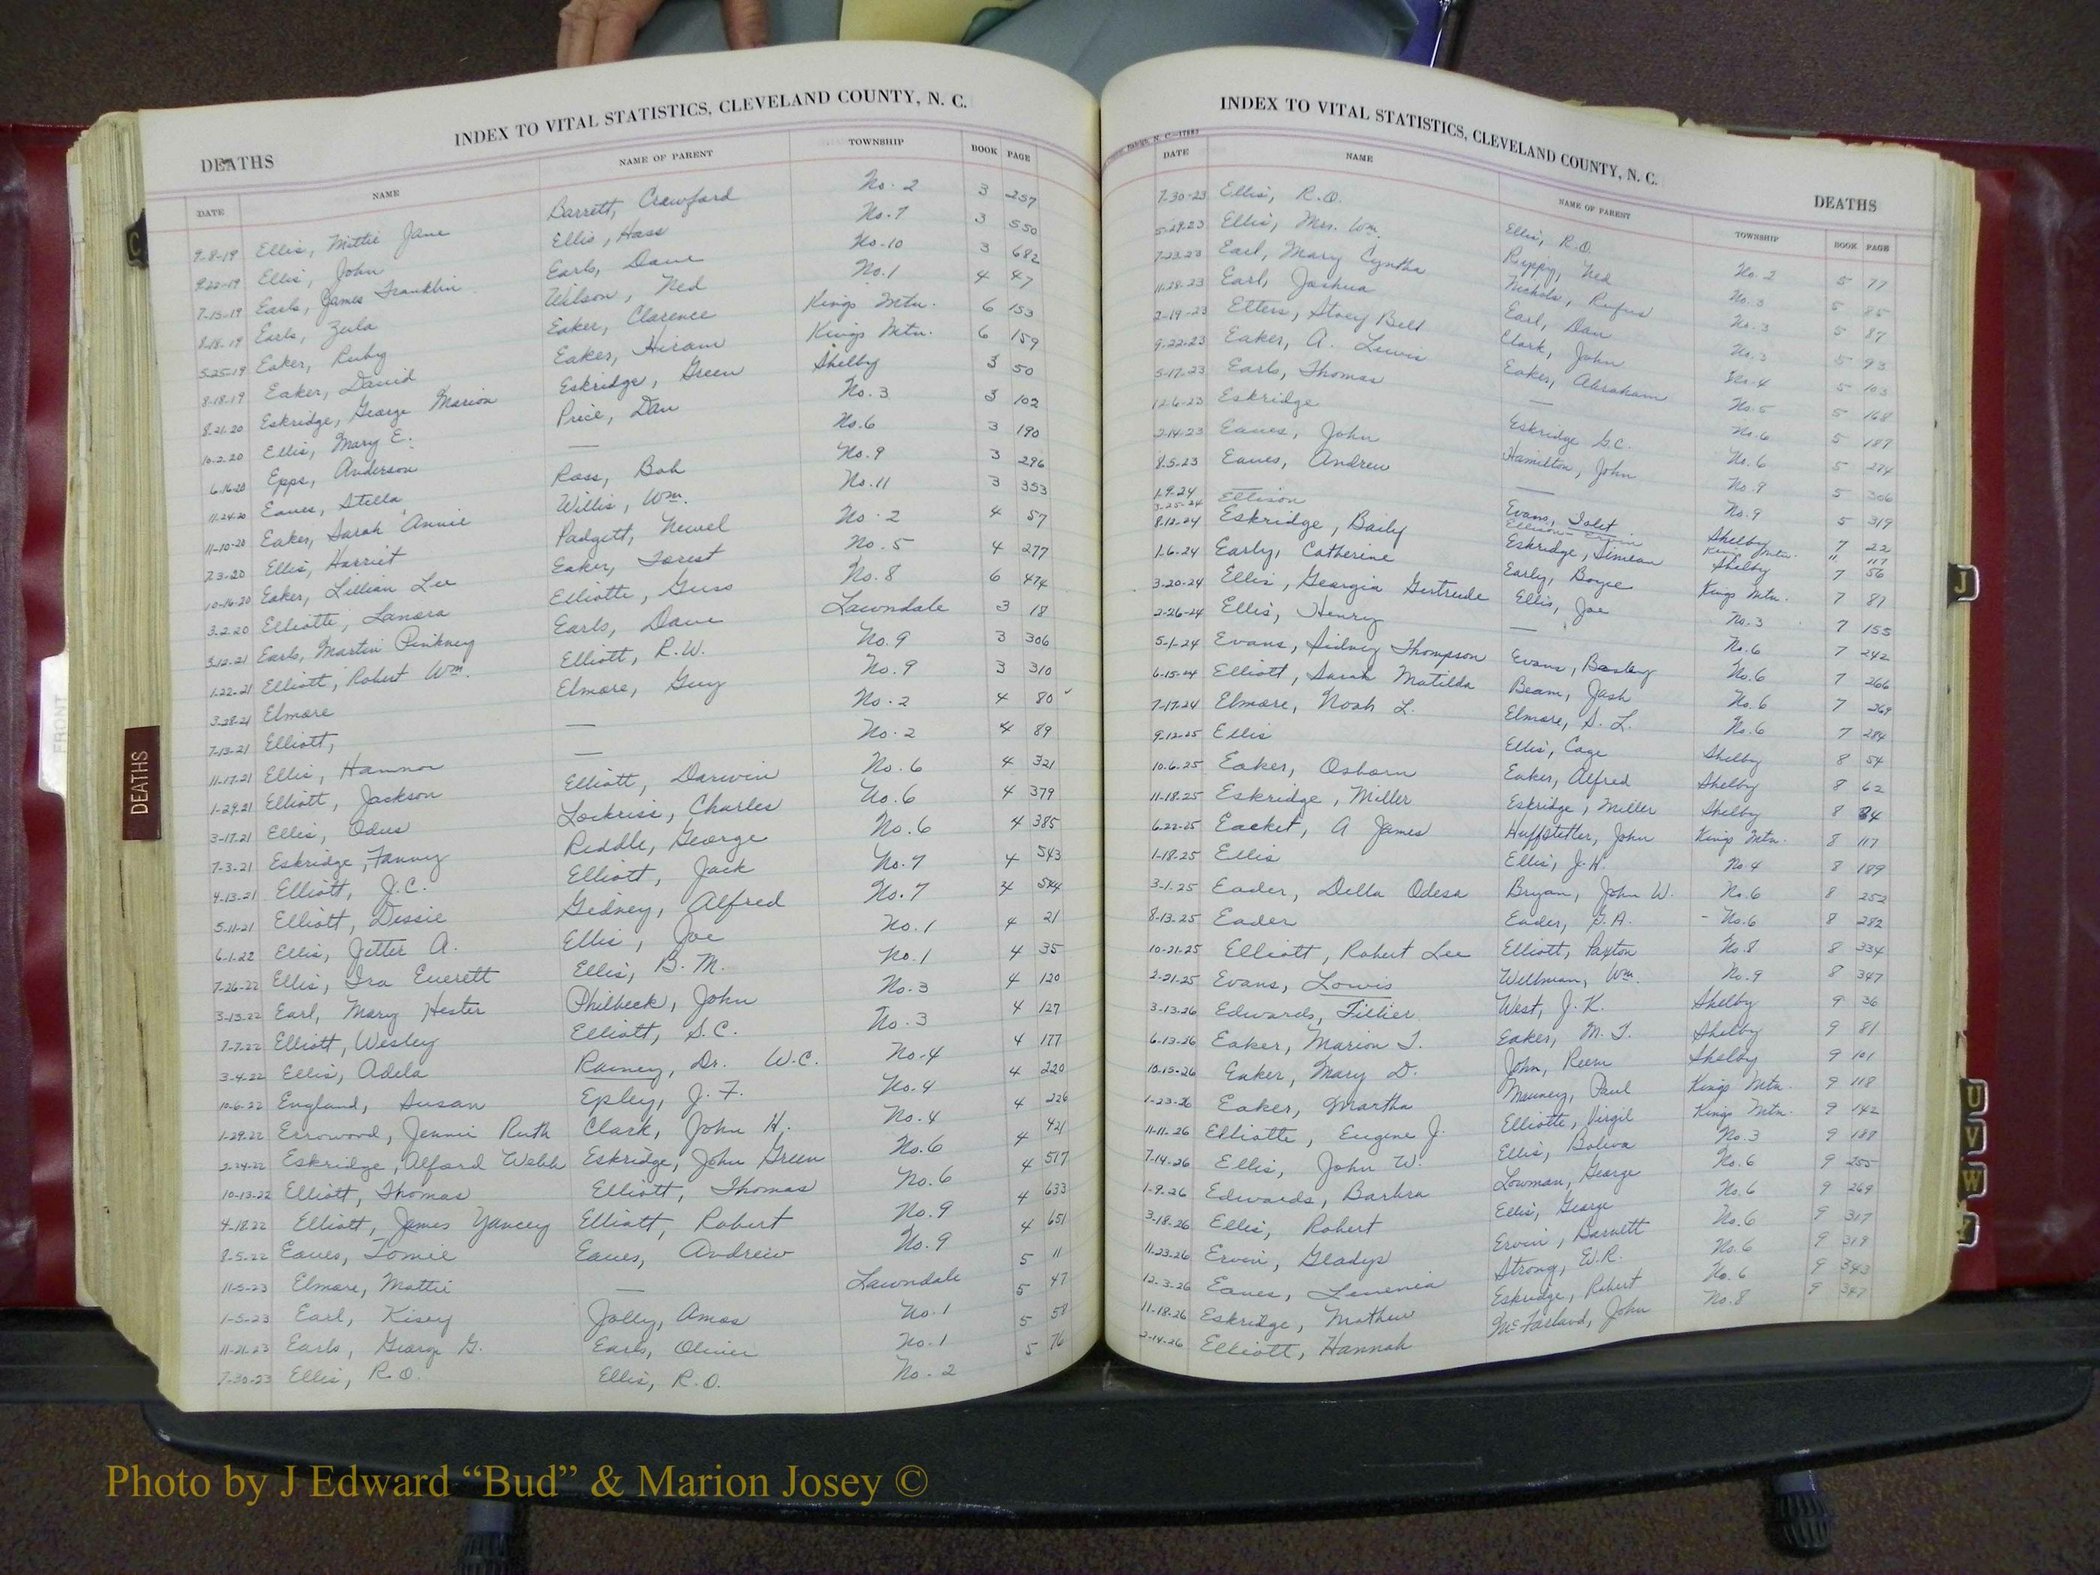 INDEX TO VITAL STATISTICS, CLEVELAND COUNTY, N. C.
DEATHS
DATE NAME NAME OF PARENT TOWNSHIP BOOK PAGE
9-8-19 Ellis, Mittie Jane Barrett, Crawford No. 2 3 257
9-22-19 Ellis, John Ellis, Hass No. 7 3 550
7-15-19 Earls, James Franklin Earls, Dave No. 10 3 682
8-18-19 Earls, Zula Wilson, Ned No. 1 4 47
5-25-19 Eaker, Ruby Eaker, Clarence Kings Mtn. 6 153
8-18-19 Eaker, David Eaker, Hiram Kings Mtn. 6 159
8-21-20 Eskridge, George Marion Eskridge, Green Shelby 3 50
10-2-20 Ellis, Mary E. Price, Dan No. 3 3 102
6-16-20 Epps, Anderson — No. 6 3 190
11-24-20 Eaves, Stella Ross, Bob No. 9 3 296
11-10-20 Eaker, Sarah Annie Willis, Wm. No. 11 3 353
7-3-20 Ellis, Harriet Padgett, Newel No. 2 4 57
10-16-20 Eaker, Lillian Lee Eaker, Forest No. 5 4 277
3-2-20 Elliotte, Lanora Elliotte, Guss No. 8 6 474
3-12-21 Earls, Martin Pinkney Earls, Dave Lawndale 3 18
1-22-21 Elliott, Robert Wm. Elliott, R.W. No. 9 3 306
3-28-21 Elmore Elmore, Guy No. 9 3 310
7-13-21 Elliott, — No. 2 4 80
11-17-21 Ellis, Hamnor — No. 2 4 89
1-29-21 Elliott, Jackson Elliott, Darwin No. 6 4 321
3-17-21 Ellis, Odus Lockriss, Charles No. 6 4 379
7-3-21 Eskridge, Fanny Riddle, George No. 6 4 385
4-13-21 Elliott, J.C. Elliott, Jack No. 7 4 543
5-11-21 Elliott, Dessie Gidney, Alfred No. 7 4 544
6-1-22 Ellis, Jetter A. Ellis, Joe No. 1 4 21
7-26-22 Ellis, Ira Everett Ellis, B. M. No. 1 4 35
3-13-22 Earl, Mary Hester Philbeck, John No. 3 4 120
7-7-22 Elliott, Wesley Elliott, S.C. No. 3 4 127
3-4-22 Ellis, Adela Ramey, Dr. W.C. No. 4 4 177
10-6-22 England, Susan Epley, J. F. No. 4 4 220
1-29-22 Errowood, Jennie Ruth Clark, John H. No. 4 4 226
2-24-22 Eskridge, Alford Webb Eskridge, John Green No. 6 4 421
10-13-22 Elliott, Thomas Elliott, Thomas No. 6 4 517
4-18-22 Elliott, James Yancey Elliott, Robert No. 9 4 633
8-5-22 Eaves, Tomie Eaves, Andrew No. 9 4 651
11-5-23 Elmore, Mattie — Lawndale 5 11
1-5-23 Earl, Kisey Jolly, Amos No. 1 5 47
11-21-23 Earls, George G. Earls, Oliver No. 1 5 58
7-30-23 Ellis, R.O. Ellis, R.O. No. 2 5 76
INDEX TO VITAL STATISTICS, CLEVELAND COUNTY, N. C.
DEATHS
DATE NAME NAME OF PARENT TOWNSHIP BOOK PAGE
7-30-23 Ellis, R.O. Ellis, R.O. No. 2 5 77
5-29-23 Ellis, Mrs. Wm. Ruppy, Ned No. 3 5 85
7-23-23 Earl, Mary Cyntha Nichols, Rufus No. 3 5 87
11-28-23 Earl, Joshua Earl, Dan No. 3 5 93
2-19-23 Etters, Stoey Bell Clark, John No. 4 5 103
9-22-23 Eaker, A. Lewis Eaker, Abraham No. 5 5 168
5-17-23 Earls, Thomas — No. 6 5 187
12-6-23 Eskridge Eskridge G.C. No. 6 5 274
2-14-23 Eaves, John Hamilton, John No. 9 5 306
8-5-23 Eaves, Andrew — No. 9 5 319
1-9-24 Evans, Tolit Shelby 7 22
3-25-24 Ellison Ellison Ervin Kings Mtn. 11 117
8-12-24 Eskridge, Baily Eskridge, Simean Shelby 7 56
1-6-24 Early, Catherine Early, Boyce Kings Mtn. 7 87
3-20-24 Ellis, Georgia Gertrude Ellis, Joe No. 3 7 155
2-26-24 Ellis, Henry — No. 6 7 242
5-1-24 Evans, Sidney Thompson Evans, No. 6 7 266
6-15-24 Elliott, Sarah Matilda Beam, Josh No. 6 7 269
7-17-24 Elmore, Noah L. Elmore, S. L. No. 6 7 284
9-12-25 Ellis Ellis, Cage Shelby 8 54
10-6-25 Eaker, Osborn Eaker, Alfred Shelby 8 62
11-18-25 Eskridge, Miller Eskridge, Miller Shelby 8 84
6-22-25 Eacket, A James Huffstetler, John Kings Mtn. 8 117
1-18-25 Ellis Ellis, J.H. No. 4 8 189
3-1-25 Eader, Della Odesa Bryan, John W. No. 6 8 252
8-13-25 Eader Eader, G.A. - No. 6 8 282
10-21-25 Elliott, Robert Lee Elliott, Paxton No. 8 8 334
2-21-25 Evans, Lowis Wellman, Wm. No. 9 8 347
3-13-26 Edwards, Tillier West, J. K. Shelby 9 36
6-13-26 Eaker, Marion T. Eaker, M. T. Shelby 9 81
10-15-26 Eaker, Mary D. John, Reem Shelby 9 101
1-23-26 Eaker, Martha Mauney, Paul Kings Mtn. 9 118
11-11-26 Elliotte, Eugene J. Elliotte, Virgil Kings Mtn. 9 142
7-14-26 Ellis, John W. Ellis, Boliva No. 3 9 188
1-9-26 Edwards, Barbra Lowman, George No. 6 9 255
3-18-26 Ellis, Robert Ellis, George No. 6 9 269
11-23-26 Ervin, Gladys Ervin, Barnett No. 6 9 317
12-3-26 Eaves, Strong, W.R. No. 6 9 319
11-18-26 Eskridge, Mathew Eskridge, Robert No. 6 9 343
2-14-26 Elliott, Hannah McFarland, John No. 8 9 347
C
DEATHS
FRONT
J
U
V
W
Photo by J Edward “Bud” & Marion Josey ©